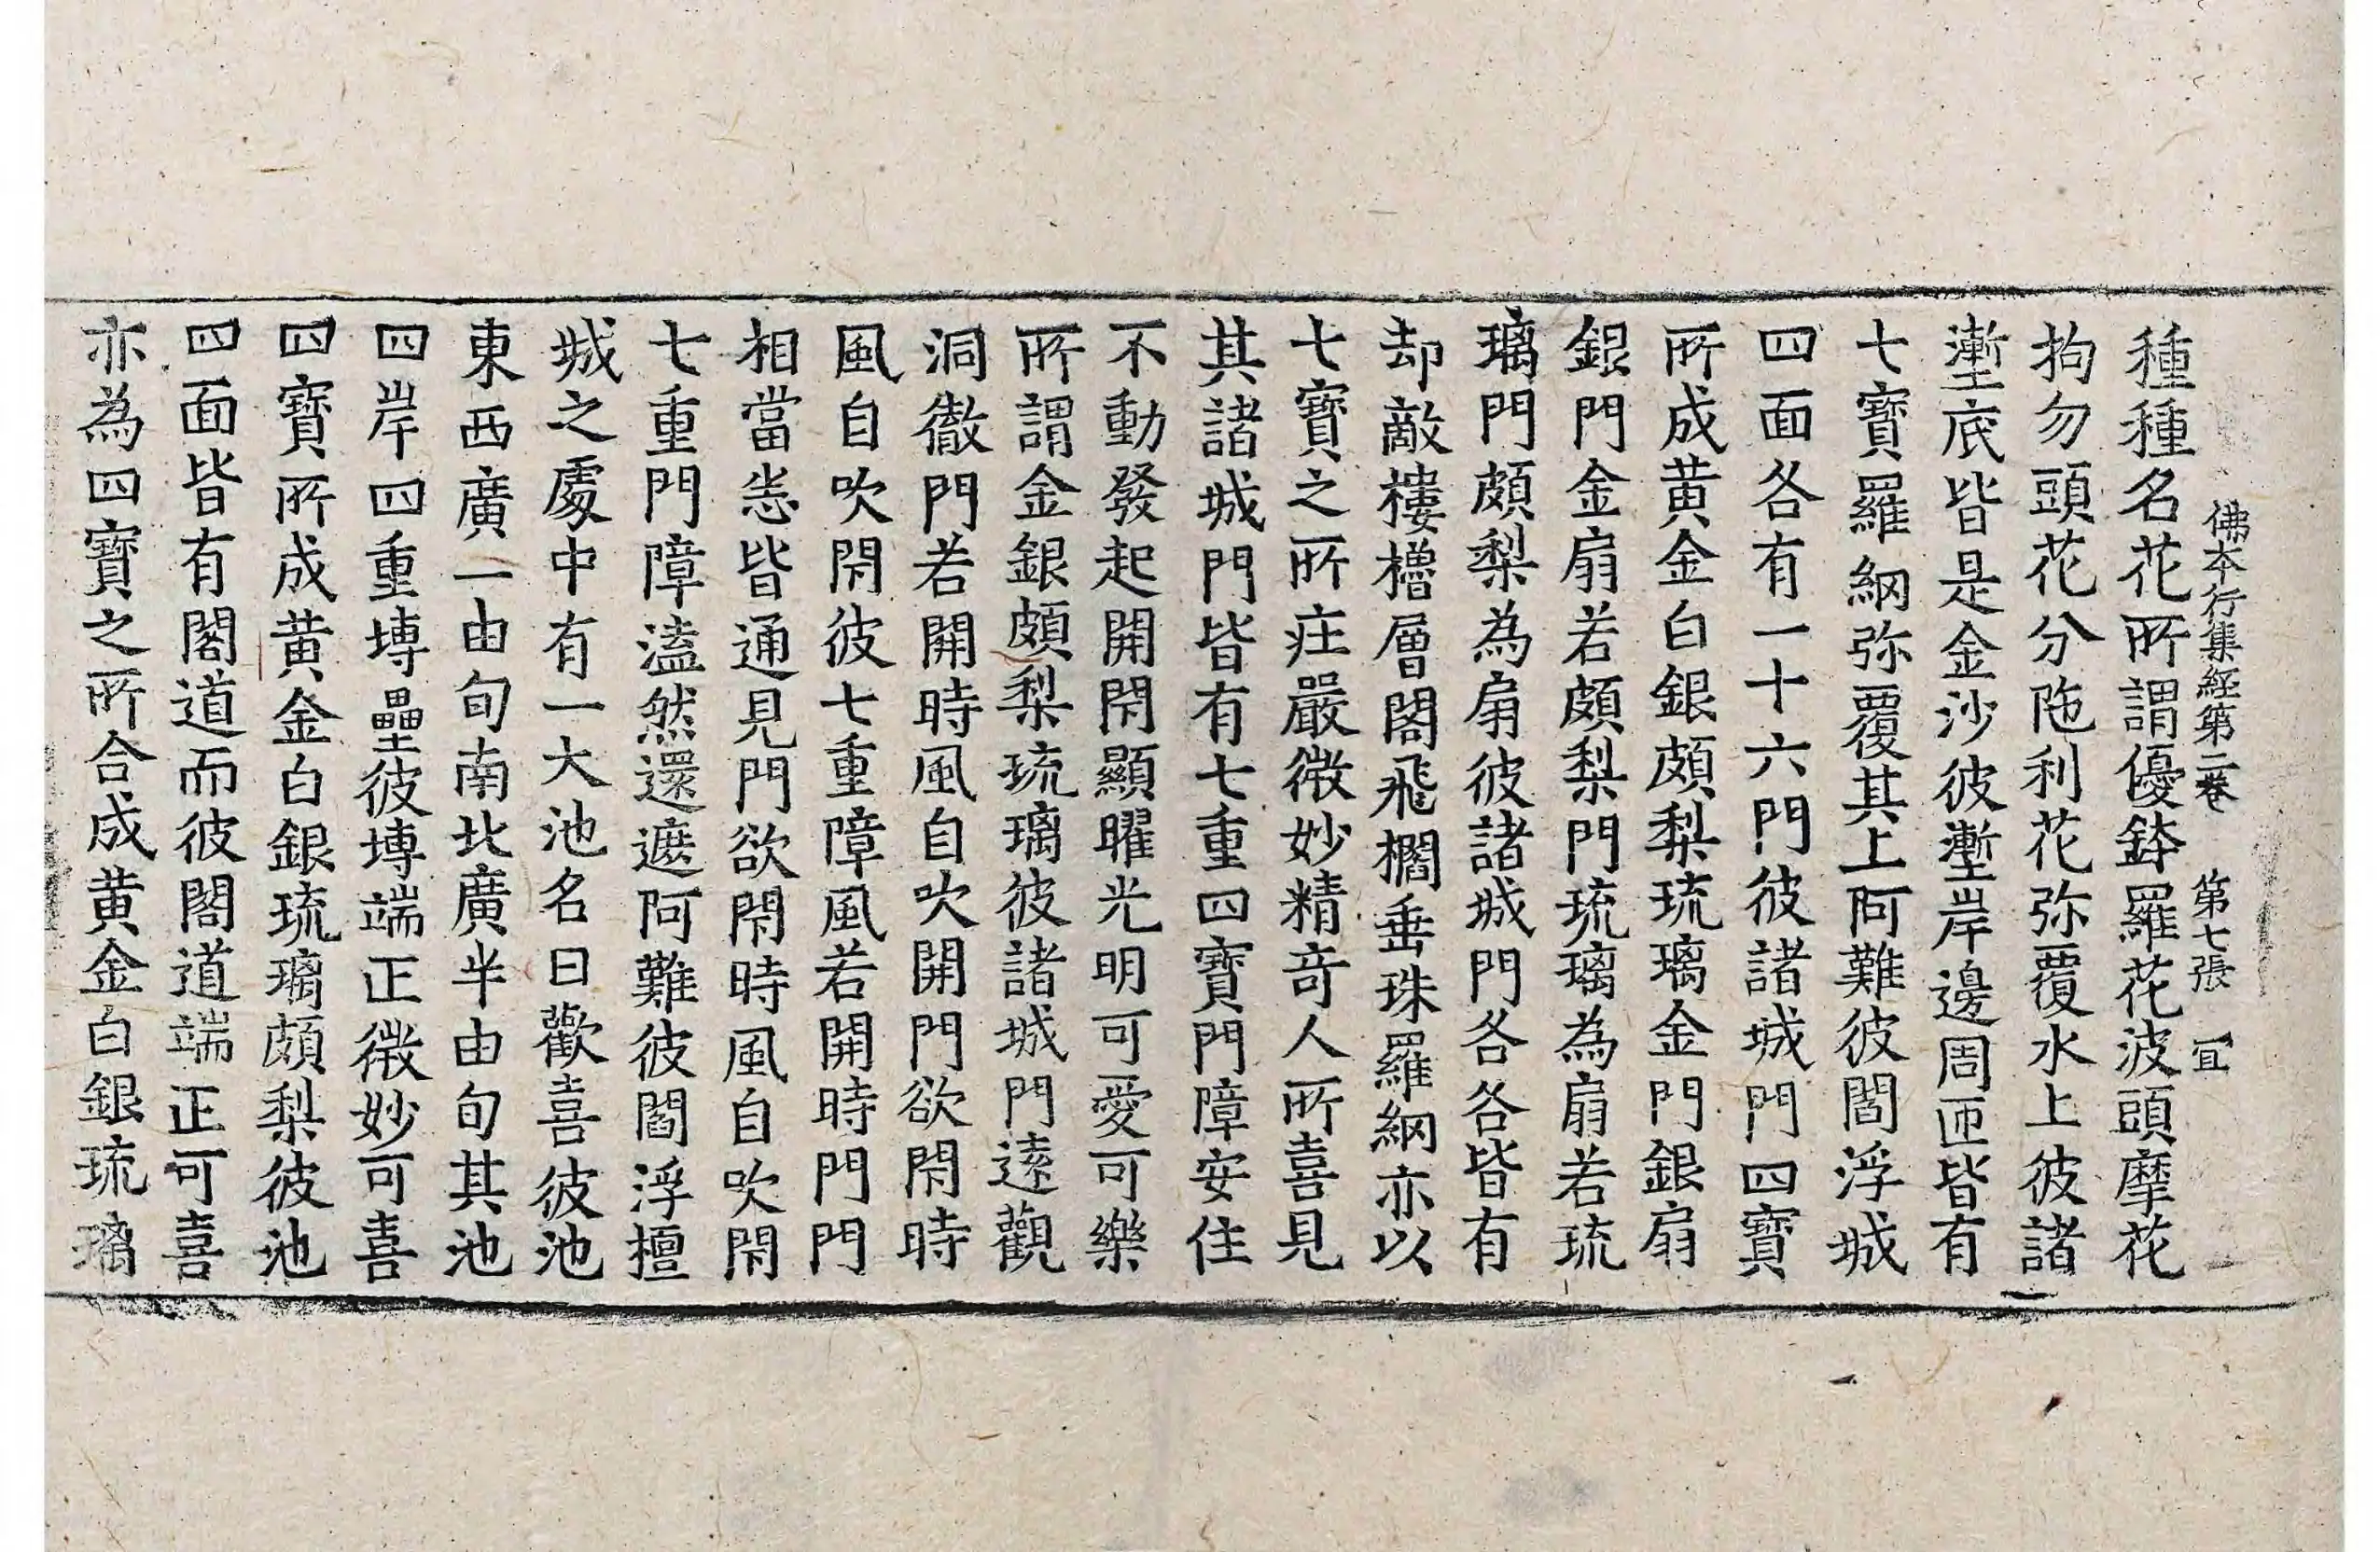 佛本行集經第二卷　第七張　宜
種種名花所謂優鉢羅花波頭摩花
拘勿頭花分陁利花弥覆水上彼諸
壍底皆是金沙彼壍岸邊周匝皆有
七寶羅網弥覆其上阿難彼閻浮城
四面各有一十六門彼諸城門四寶
所成黄金白銀頗梨琉璃金門銀扇
銀門金扇若頗梨門琉璃為扇若琉
璃門頗梨為扇彼諸城門各各皆有
却敵樓櫓層閣飛櫚垂珠羅網亦以
七寶之所莊嚴微妙精竒人所喜見
其諸城門皆有七重四寶門障安住
不動發起開閇顯曜光明可愛可樂
所謂金銀頗梨琉璃彼諸城門遠觀
洞徹門若開時風自吹開門欲閇時
風自吹閇彼七重障風若開時門門
相當悉皆通見門欲閇時風自吹閇
七重門障溘然還遮阿難彼閻浮檀
城之處中有一大池名曰歡喜彼池
東西廣一由旬南北廣半由旬其池
四岸四重塼壘彼塼端正微妙可喜
四寶所成黄金白銀琉璃頗梨彼池
四面皆有閣道而彼閣道端正可喜
亦為四寶之所合成黄金白銀琉璃